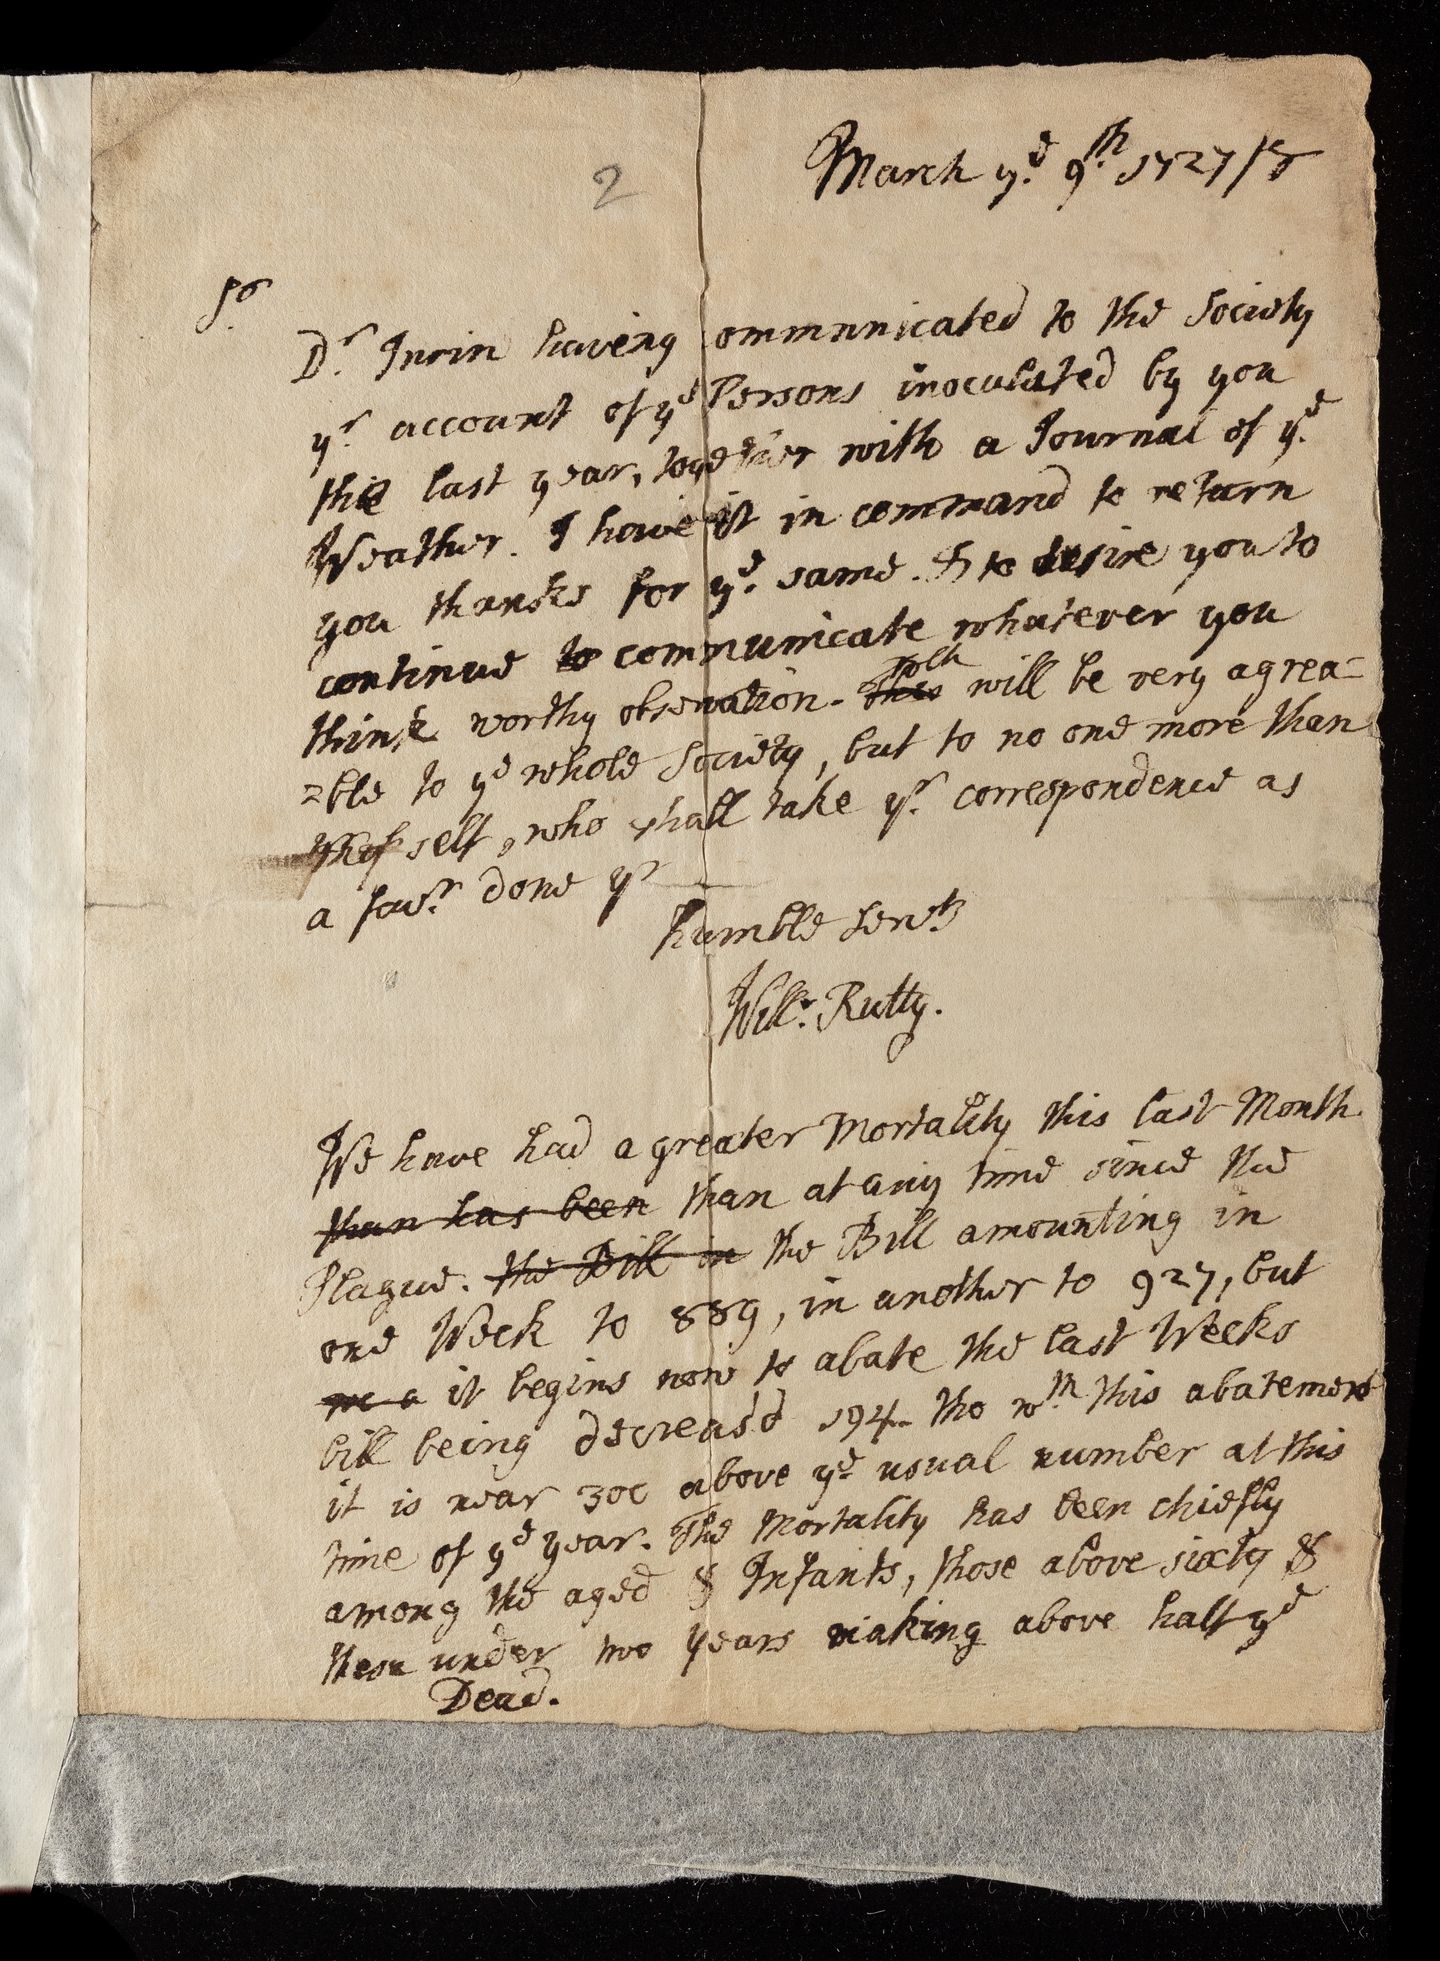 2
March yᵉ 9.th 1727/8
Sʳ
Dʳ. Jurin having communicated to the Society
yʳ account of yᵉ Persons inoculated by you
this last year, together with a Journal of yᵉ
Weather. I have it in command to return
you thanks for yᵉ same. & to desire you to
continue to communicate whatever you
think worthy observation. this wch will be very agrea=
=ble to yᵉ whole Society, but to no one more than
my self, who shall take yʳ correspondence as
a favʳ done yʳ
humble Servt
Willm. Rutty.
We have had a greater Mortality this last Month
than has been than at any time since the
Plague. the Bill in the Bill amounting in
one Week to 889, in another to 927, but
it begins now to abate the last Weeks
bill being decreas'd 194. tho wth this abatement
it is near 300 above yᵉ usual number at this
time of yᵉ year. The Mortality has been chiefly
among the aged & Infants, those above sixty &
those under two years making above half yᵉ
Dead.